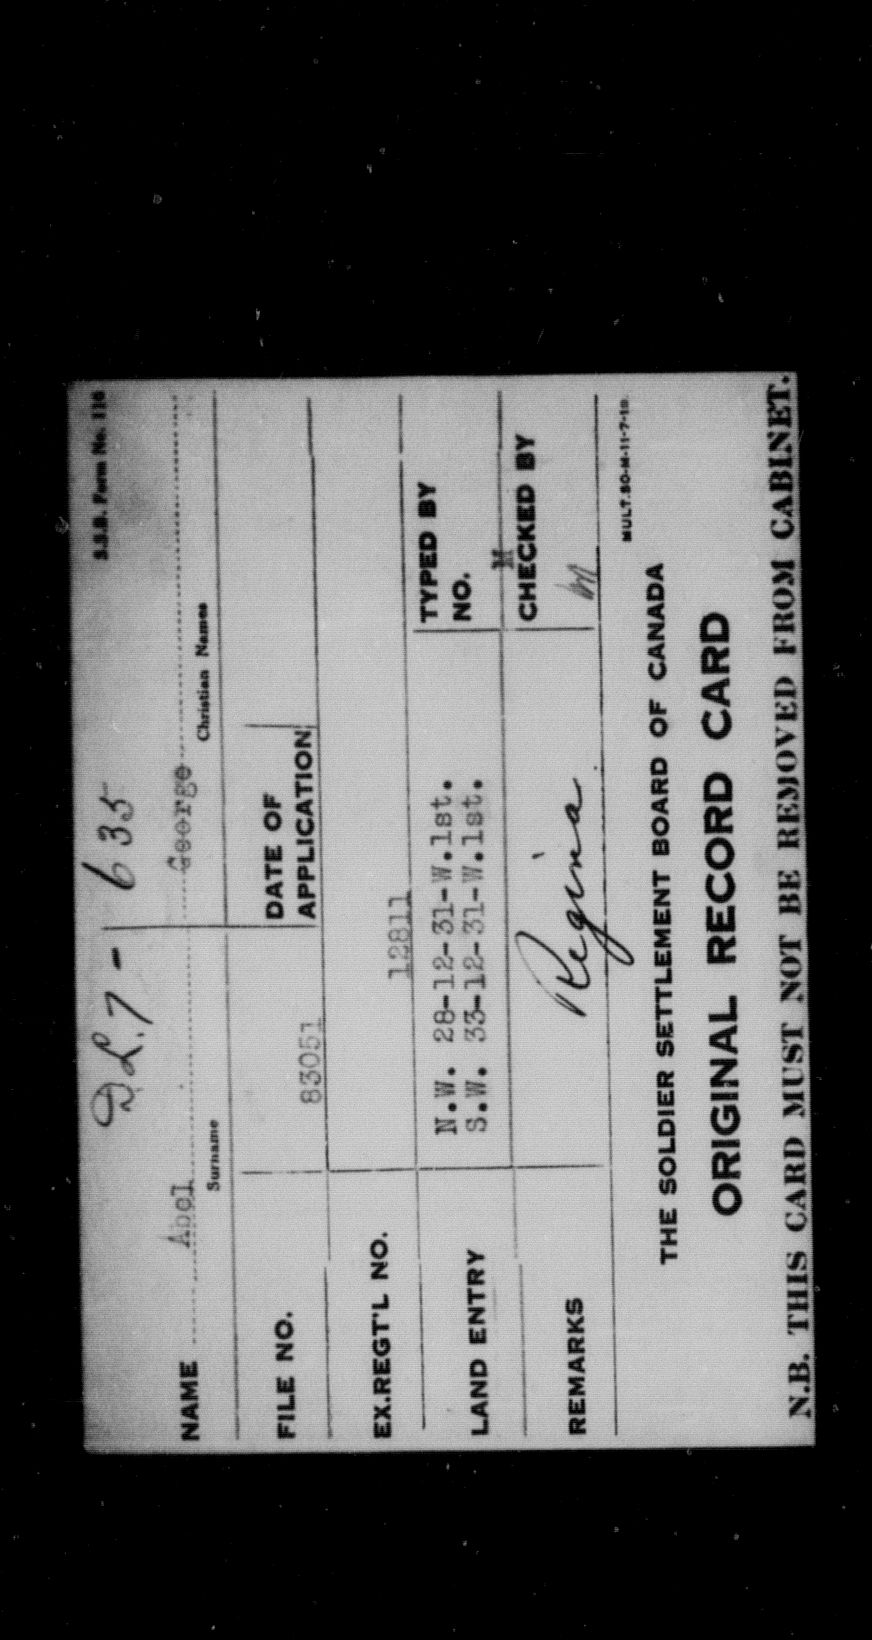 S.S.B. Form No. 116
D L. 7 - 635
NAME Abel George
Surname Christian Names
FILE NO. 83051 DATE OF APPLICATION
EX.REGT'L NO. 12811
LAND ENTRY N.W. 28-12-31-W.1st. TYPED BY
S.W. 33-12-31-W.1st. NO.
M
CHECKED BY
REMARKS Regina M
MULT.50-M-11-7-19
THE SOLDIER SETTLEMENT BOARD OF CANADA
ORIGINAL RECORD CARD
N.B. THIS CARD MUST NOT BE REMOVED FROM CABINET.